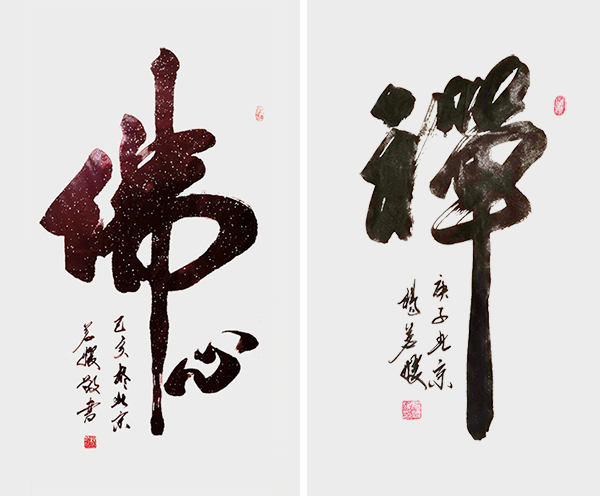 佛心
己亥於北京
若媛敬書
禪
庚子北京
楊若媛